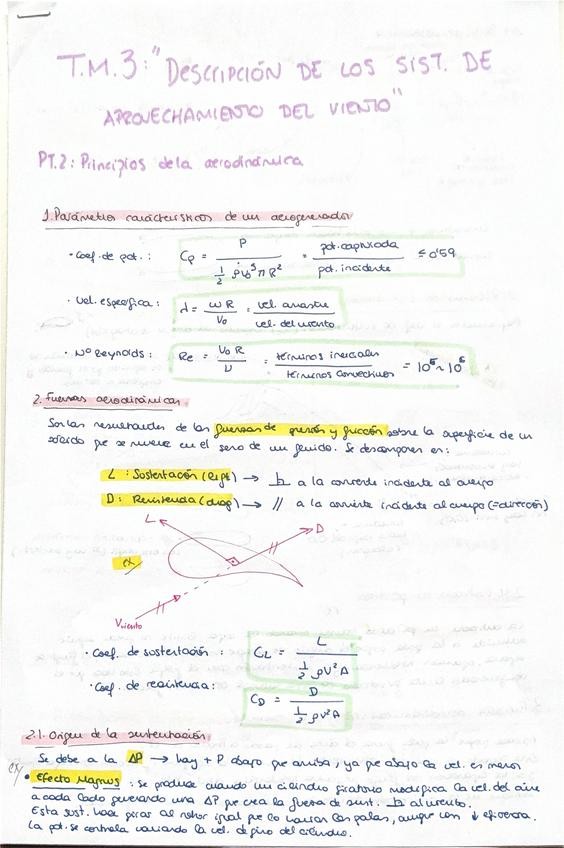 T.M.3: "DESCRIPCIÓN DE LOS SIST. DE
APROVECHAMIENTO DEL VIENTO"
PT.2: Principios de la aerodinámica
1. Parámetros característicos de un aerogenerador
• Coef. de pot.: Cp = P / (½ ρ v₀³ π R²) = pot. capturada / pot. incidente ≤ 0'59
• Vel. específica: λ = ωR / V₀ = vel. arrastre / vel. del viento
• Nº Reynolds: Re = V₀R / ν = términos inerciales / términos convectivos =
2. Fuerzas aerodinámicas
Son las resultantes de las fuerzas de presión y fricción sobre la superficie de un
sólido que se mueve en el seno de un fluido. Se descomponen en:
L: Sustentación (lift) → ⊥ a la corriente incidente al cuerpo
D: Resistencia (drag) → // a la corriente incidente al cuerpo (=dirección)
L D
// 
ex
//
Vviento
• Coef. de sustentación: CL = L / (½ ρV²A)
• Coef. de resistencia: CD = D / (½ ρV²A)
2.1. Origen de la sustentación
Se debe a la ΔP → hay + P abajo que arriba, ya que abajo la vel. es menor
ex/
• Efecto Magnus: Se produce cuando un cilindro giratorio modifica la vel. del aire
a cada lado generando una ΔP que crea la fuerza de sust. ⊥ al viento.
Esta sust. hace girar al rotor igual que lo harían las palas, aunque con ↓ eficiencia.
La pot. se controla variando la vel. de giro del cilindro.